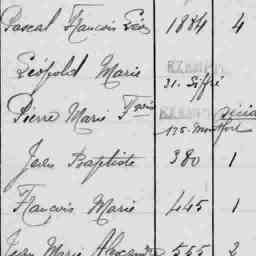 Pascal François Léon 1884 4
Léopold Marie EXEMPT
31. Siffré
Pierre Marie Fçois EXEMPT
125. Montfort
Jean Baptiste 380 1
François Marie 445 1
Jean Marie Alexandre 555 2